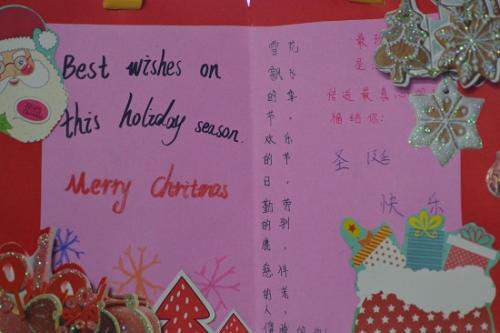 Best wishes on
this holiday season.
Merry Chritmas
雪花
飘飞
的季
节，
欢乐
的节
日，
勤劳
的
鹿，
慈祥
的老
人，
最
是
传送最真心的
福给你：
圣诞
快乐